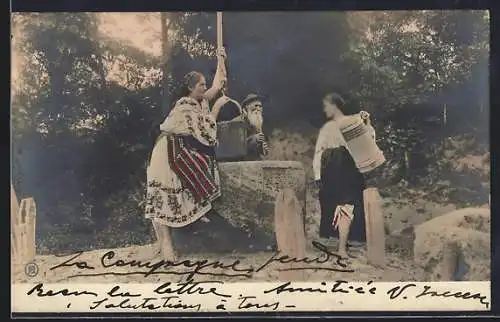 La Campagne
Reçu la lettre. Amitiés V.
Salutations à tous